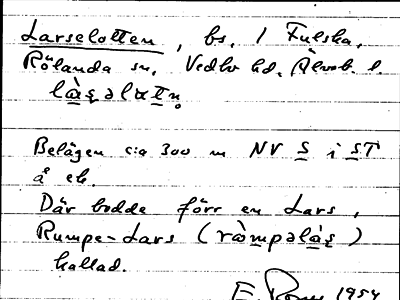 Larselotten, bs. / Fulska,
Rölanda sn, Vedbo hd, Älvsb. l.
làşəlɑtn̥
Belägen c:a 300 m NV S i ST
å ek.
Där bodde förr en Lars,
Rumpe-Lars (ràmpəlàş)
kallad.
1954